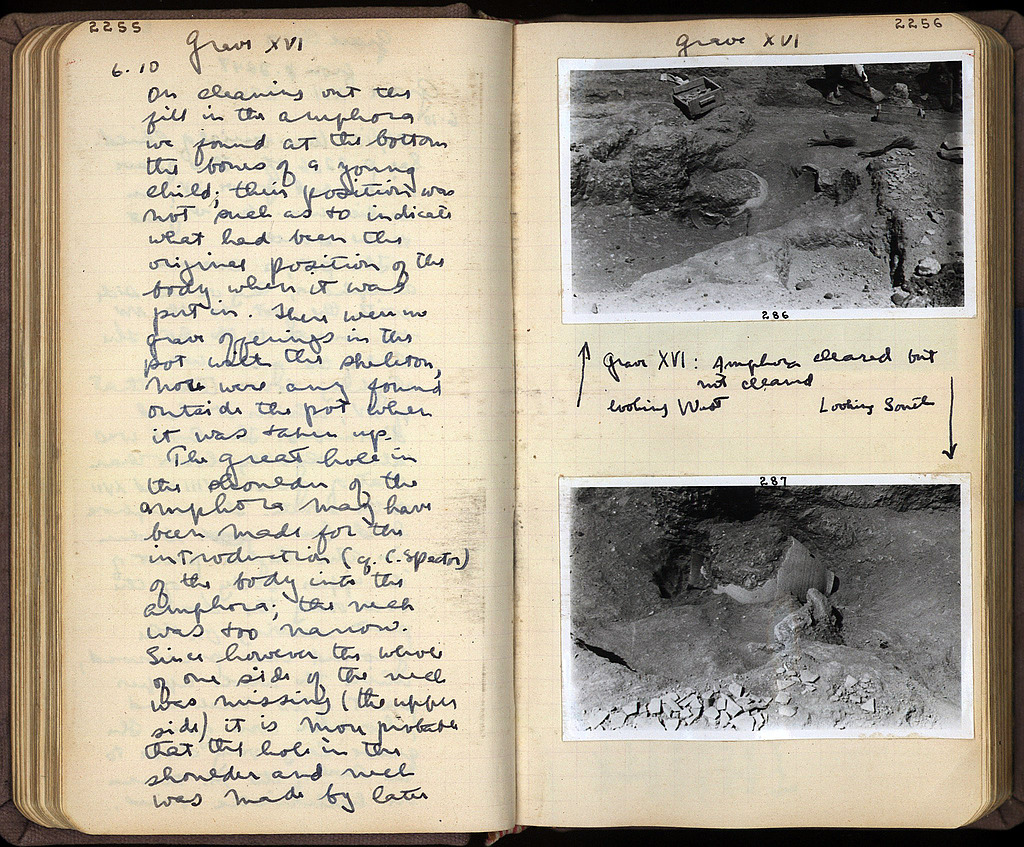 2255
Grave XVI
6.10
On cleaning out the
fill in the amphora
we found at the bottom
the bones of a young
child; their position was
not such as to indicate
what had been the
original position of the
body when it was
put in. There were no
grave offerings in the
pot with the skeleton,
nor were any found
outside the pot when
it was taken up.
The great hole in
the shoulder of the
amphora may have
been made for the
introduction (cf. C. Spector)
of the body into the
amphora; the neck
was too narrow.
Since however the whole
of one side of the neck
was missing (the upper
side) it is more probable
that the hole in the
shoulder and neck
was made by later
2256
Grave XVI
286
Grave XVI: Amphora cleared but
not cleaned
looking West Looking South
287